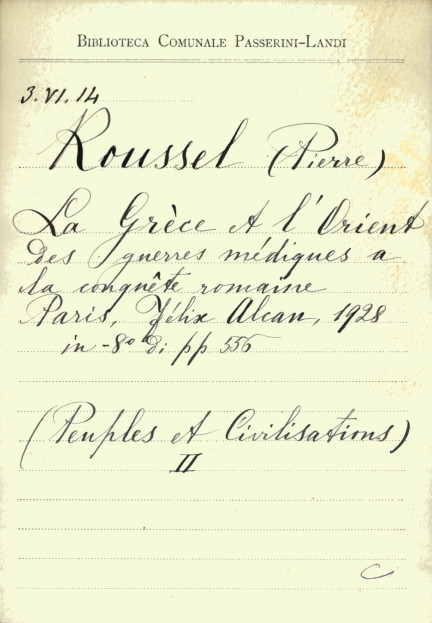 BIBLIOTECA COMUNALE PASSERINI-LANDI
3.VI.14
Roussel (Pierre)
La Grèce et l'Orient
Des guerres médiques a
la conquête romaine
Paris, Félix Alcan, 1928
in-8º di pp 556
(Peuples et Civilisations)
II
C